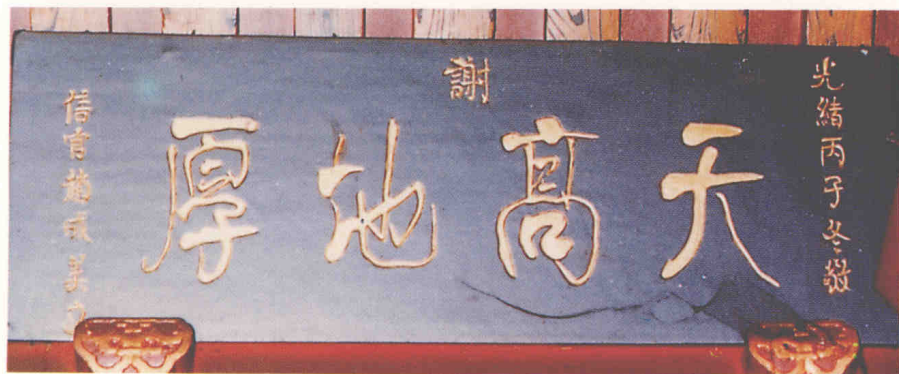 光緒丙子冬敬
謝
天高地厚
信官